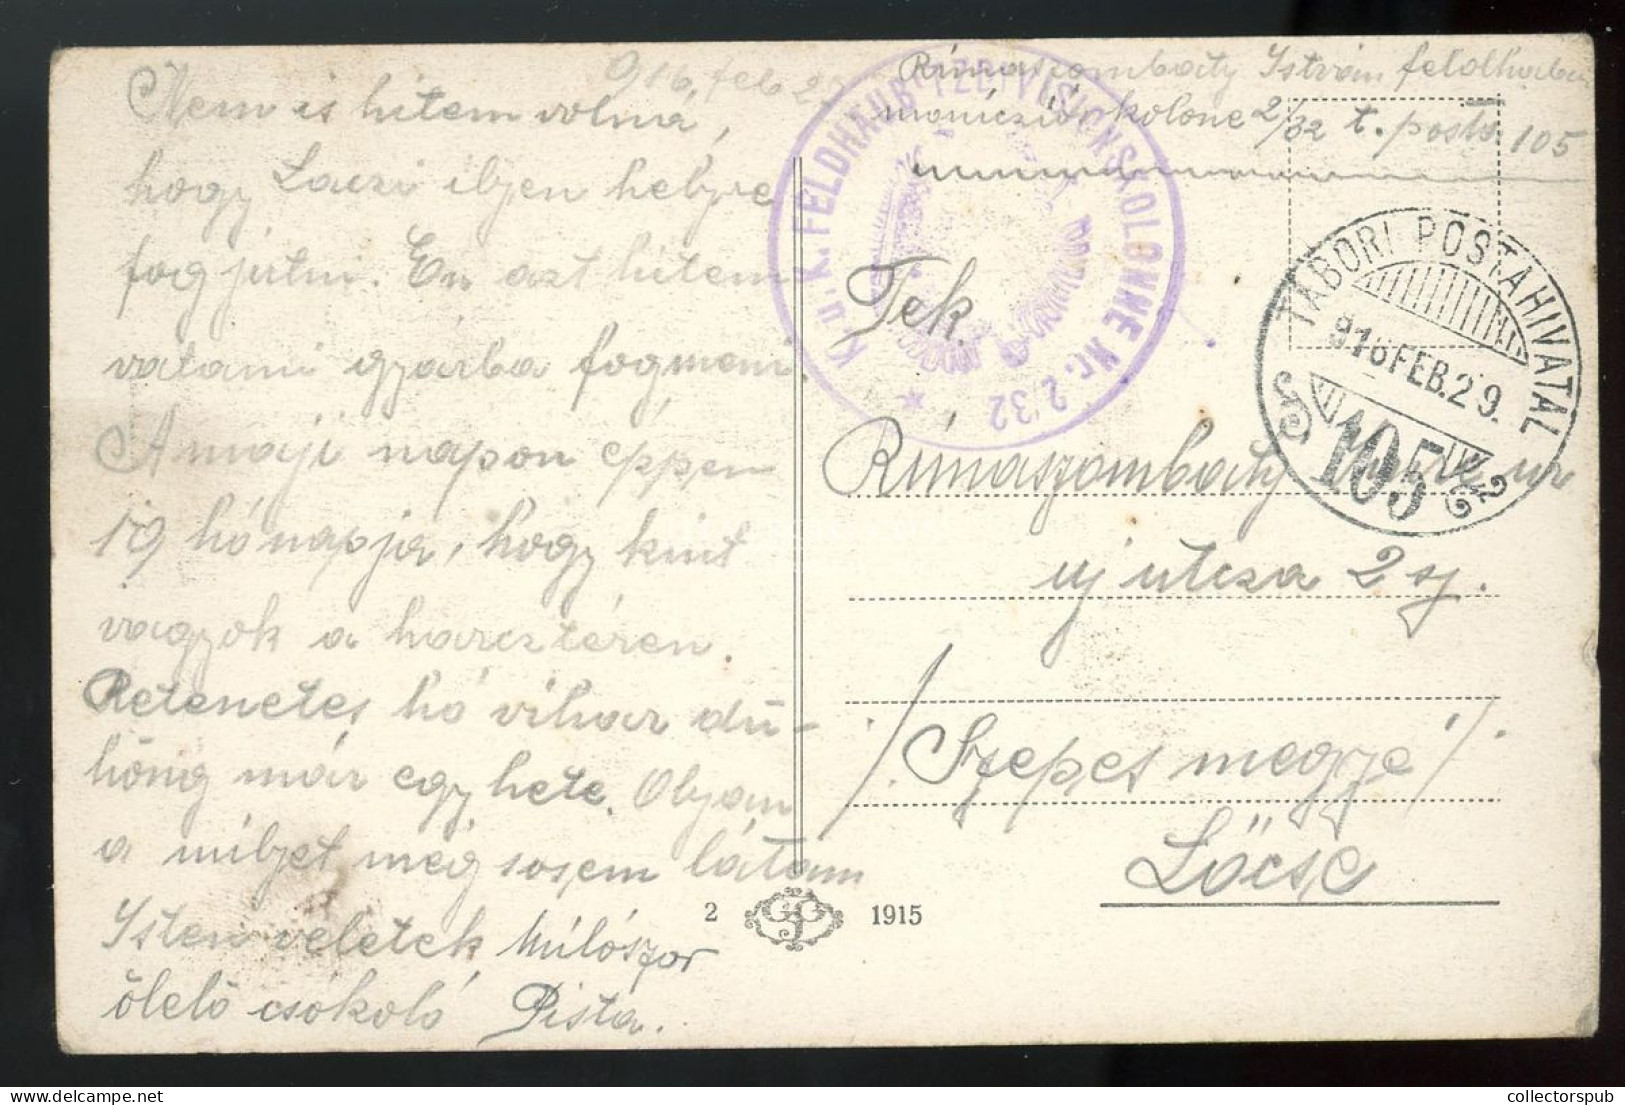 916. feb 29
Nem is hitem volna,
hogy Laczi ilyen helyre
fog jutni. En azt hitem
valami gyárba fogmeni.
A maiji napon éppen
19 hónapja, hogy kint
vagyok a harcztéren.
Retenetes hó vihar dü-
höng már egy hete. Olyan
a milyet még sosem látam
Isten veletek Milószor
ölelö csókoló Pista.
Rimaszombaty István feldhaubic
municziós kolone 2/32 t. posta 105
K. u. K. FELDHAUBITZDIVISIONSKOLONNE Nr. 2/32
TÁBORI POSTAHIVATAL
916 FEB. 29.
105
Tek.
Rimaszombaty ur
uj utcza 2 sz.
/Szepes megye/.
Löcse
2 1915
collectorspub